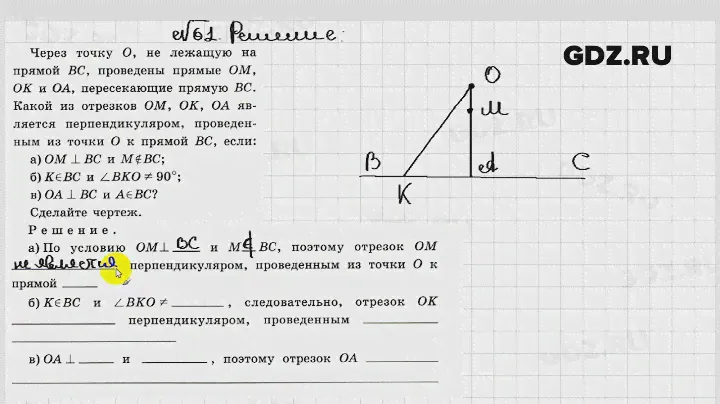 №61. Решение:
GDZ.RU
Через точку O, не лежащую на
прямой BC, проведены прямые OM,
OK и OA, пересекающие прямую BC.
Какой из отрезков OM, OK, OA яв-
ляется перпендикуляром, проведен-
ным из точки O к прямой BC, если:
а) OM ⊥ BC и M∉BC;
б) K∈BC и ∠BKO ≠ 90°;
в) OA ⊥ BC и A∈BC?
Сделайте чертеж.
Решение.
O
M
B
A
C
K
а) По условию OM⊥ BC и M ∉ BC, поэтому отрезок OM
не является перпендикуляром, проведенным из точки O к
прямой ____
б) K∈BC и ∠BKO ≠ ____, следовательно, отрезок OK
____ перпендикуляром, проведенным ____
в) OA ⊥ ____ и ____, поэтому отрезок OA ____